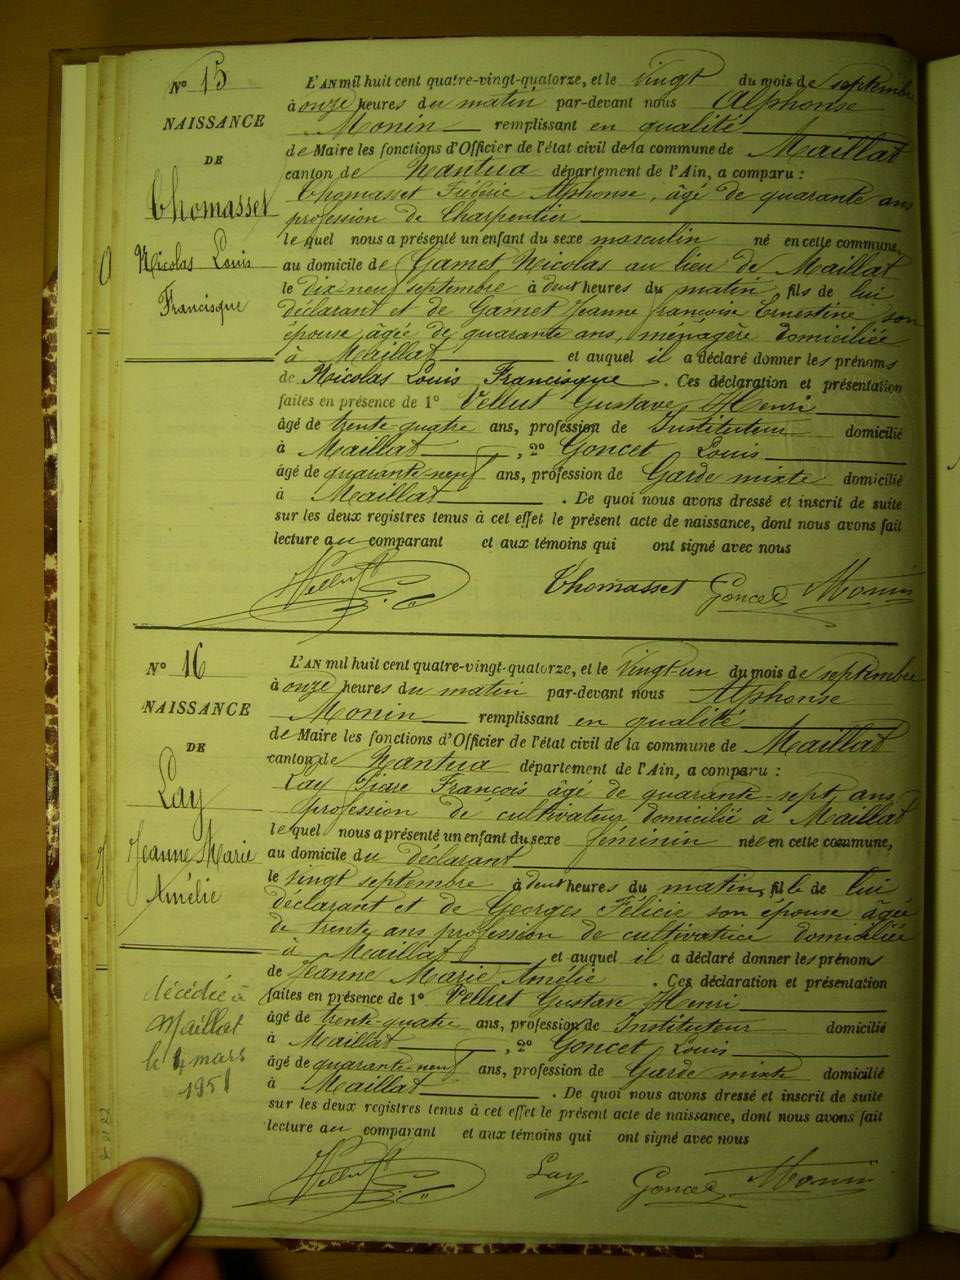 N° 15
NAISSANCE
DE
Thomasset
Nicolas Louis
Francisque
L'AN mil huit cent quatre-vingt-quatorze, et le vingt du mois de septembre
à onze heures du matin par-devant nous Alphonse
Monin remplissant en qualité
de Maire les fonctions d'Officier de l'état civil de la commune de Maillat
canton de Nantua département de l'Ain, a comparu :
Thomasset Frédéric Alphonse, âgé de quarante ans
profession de Charpentier
lequel nous a présenté un enfant du sexe masculin né en cette commune,
au domicile de Gamet Nicolas au lieu de Maillat
le dix-neuf septembre à deux heures du matin, fils de lui
déclarant et de Gamet Jeanne Françoise Ernestine son
épouse âgée de quarante ans, ménagère domiciliée
à Maillat et auquel il a déclaré donner les prénoms
de Nicolas Louis Francisque. Ces déclaration et présentation
faites en présence de 1° Vellut Gustave Henri
âgé de trente-quatre ans, profession de Instituteur domicilié
à Maillat, 2° Goncet Louis
âgé de quarante-neuf ans, profession de Garde mixte domicilié
à Maillat. De quoi nous avons dressé et inscrit de suite
sur les deux registres tenus à cet effet le présent acte de naissance, dont nous avons fait
lecture au comparant et aux témoins qui ont signé avec nous
Vellut Thomasset Goncet Monin
N° 16
NAISSANCE
DE
Lay
Jeanne Marie
Amélie
décédée à
Maillat
le 4 mars
1951
L'AN mil huit cent quatre-vingt-quatorze, et le vingt-un du mois de septembre
à onze heures du matin par-devant nous Alphonse
Monin remplissant en qualité
de Maire les fonctions d'Officier de l'état civil de la commune de Maillat
canton de Nantua département de l'Ain, a comparu :
Lay François âgé de quarante-sept ans
profession de cultivateur domicilié à Maillat
lequel nous a présenté un enfant du sexe féminin née en cette commune,
au domicile du déclarant
le vingt septembre à deux heures du matin, fille de lui
déclarant et de Georges Félicie son épouse âgée
de trente ans profession de cultivatrice domiciliée
à Maillat et auquel il a déclaré donner les prénoms
de Jeanne Marie Amélie. Ces déclaration et présentation
faites en présence de 1° Vellut Gustave Henri
âgé de trente-quatre ans, profession de Instituteur domicilié
à Maillat, 2° Goncet Louis
âgé de quarante-neuf ans, profession de Garde mixte domicilié
à Maillat. De quoi nous avons dressé et inscrit de suite
sur les deux registres tenus à cet effet le présent acte de naissance, dont nous avons fait
lecture au comparant et aux témoins qui ont signé avec nous
Vellut Lay Goncet Monin